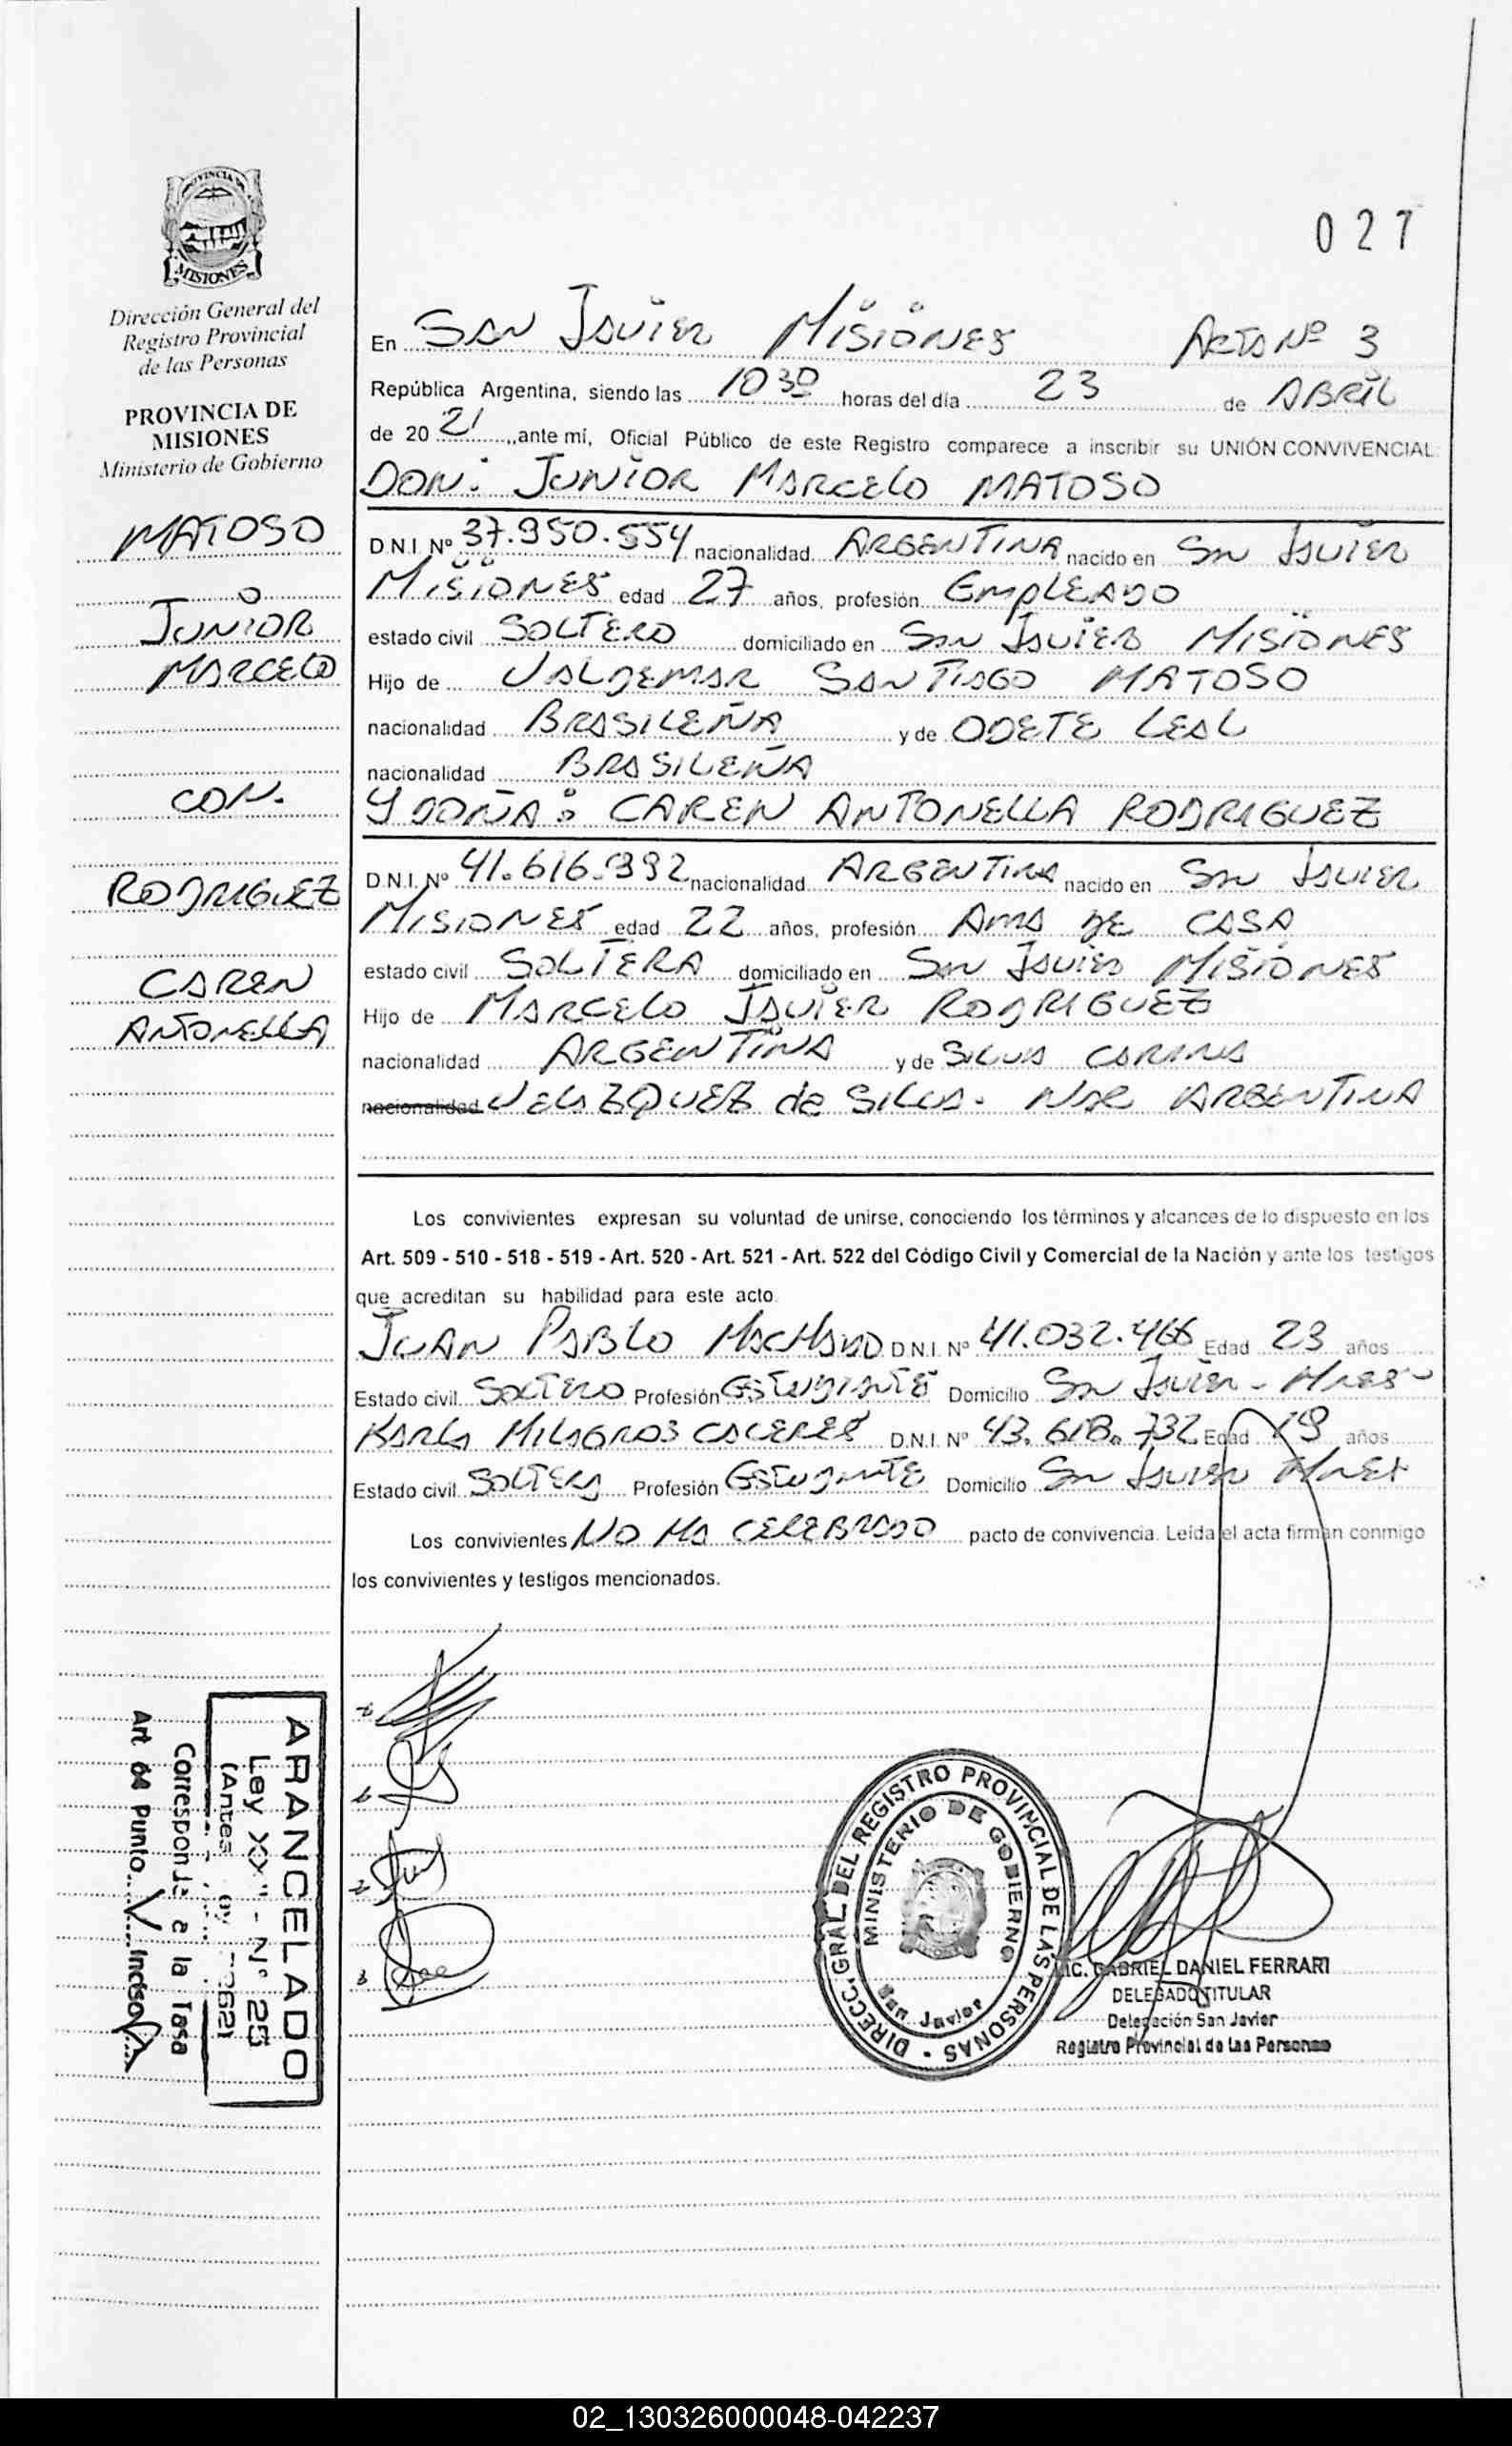 027
PROVINCIA DE
MISIONES
Dirección General del
Registro Provincial
de las Personas
PROVINCIA DE
MISIONES
Ministerio de Gobierno
MATOSO
JUNIOR
MARCELO
CON.
RODRIGUEZ
CAREN
ANTONELLA
En SAN JAVIER MISIONES ACTA Nº 3
República Argentina, siendo las 10 30 horas del día 23 de ABRIL
de 20 21 ,,ante mí, Oficial Público de este Registro comparece a inscribir su UNIÓN CONVIVENCIAL:
DON: JUNIOR MARCELO MATOSO
D.N.I. Nº 37.950.554 nacionalidad ARGENTINA nacido en SAN JAVIER
MISIONES edad 27 años, profesión EMPLEADO
estado civil SOLTERO domiciliado en SAN JAVIER MISIONES
Hijo de VALDEMAR SANTIAGO MATOSO
nacionalidad BRASILEÑA y de ODETE LEAL
nacionalidad BRASILEÑA
Y DOÑA: CAREN ANTONELLA RODRIGUEZ
D.N.I. Nº 41.616.992 nacionalidad ARGENTINA nacido en SAN JAVIER
MISIONES edad 22 años, profesión AMA DE CASA
estado civil SOLTERA domiciliado en SAN JAVIER MISIONES
Hijo de MARCELO JAVIER RODRIGUEZ
nacionalidad ARGENTINA y de SILVIA CARINA
nacionalidad VELAZQUEZ de SILVA. NAC ARGENTINA
Los convivientes expresan su voluntad de unirse, conociendo los términos y alcances de lo dispuesto en los
Art. 509 - 510 - 518 - 519 - Art. 520 - Art. 521 - Art. 522 del Código Civil y Comercial de la Nación y ante los testigos
que acreditan su habilidad para este acto.
JUAN PABLO MACHADO D.N.I. Nº 41.032.466 Edad 23 años
Estado civil SOLTERO Profesión ESTUDIANTE Domicilio SAN JAVIER - Mnes-
KARLA MILAGROS CACERES D.N.I. Nº 43.618.732 Edad 19 años
Estado civil SOLTERA Profesión ESTUDIANTE Domicilio SAN JAVIER Mnes
Los convivientes NO HA CELEBRADO pacto de convivencia. Leída el acta firman conmigo
los convivientes y testigos mencionados.
ARANCELADO
Ley XX - N° 25
(Antes
Corresponde a la Tasa
Art 64 Punto Inciso
DIRECC. GRAL. DEL REGISTRO PROVINCIAL DE LAS PERSONAS -
MINISTERIO DE GOBIERNO
San Javier
LIC. GABRIEL DANIEL FERRARI
DELEGADO TITULAR
Delegación San Javier
Registro Provincial de las Personas
02_130326000048-042237